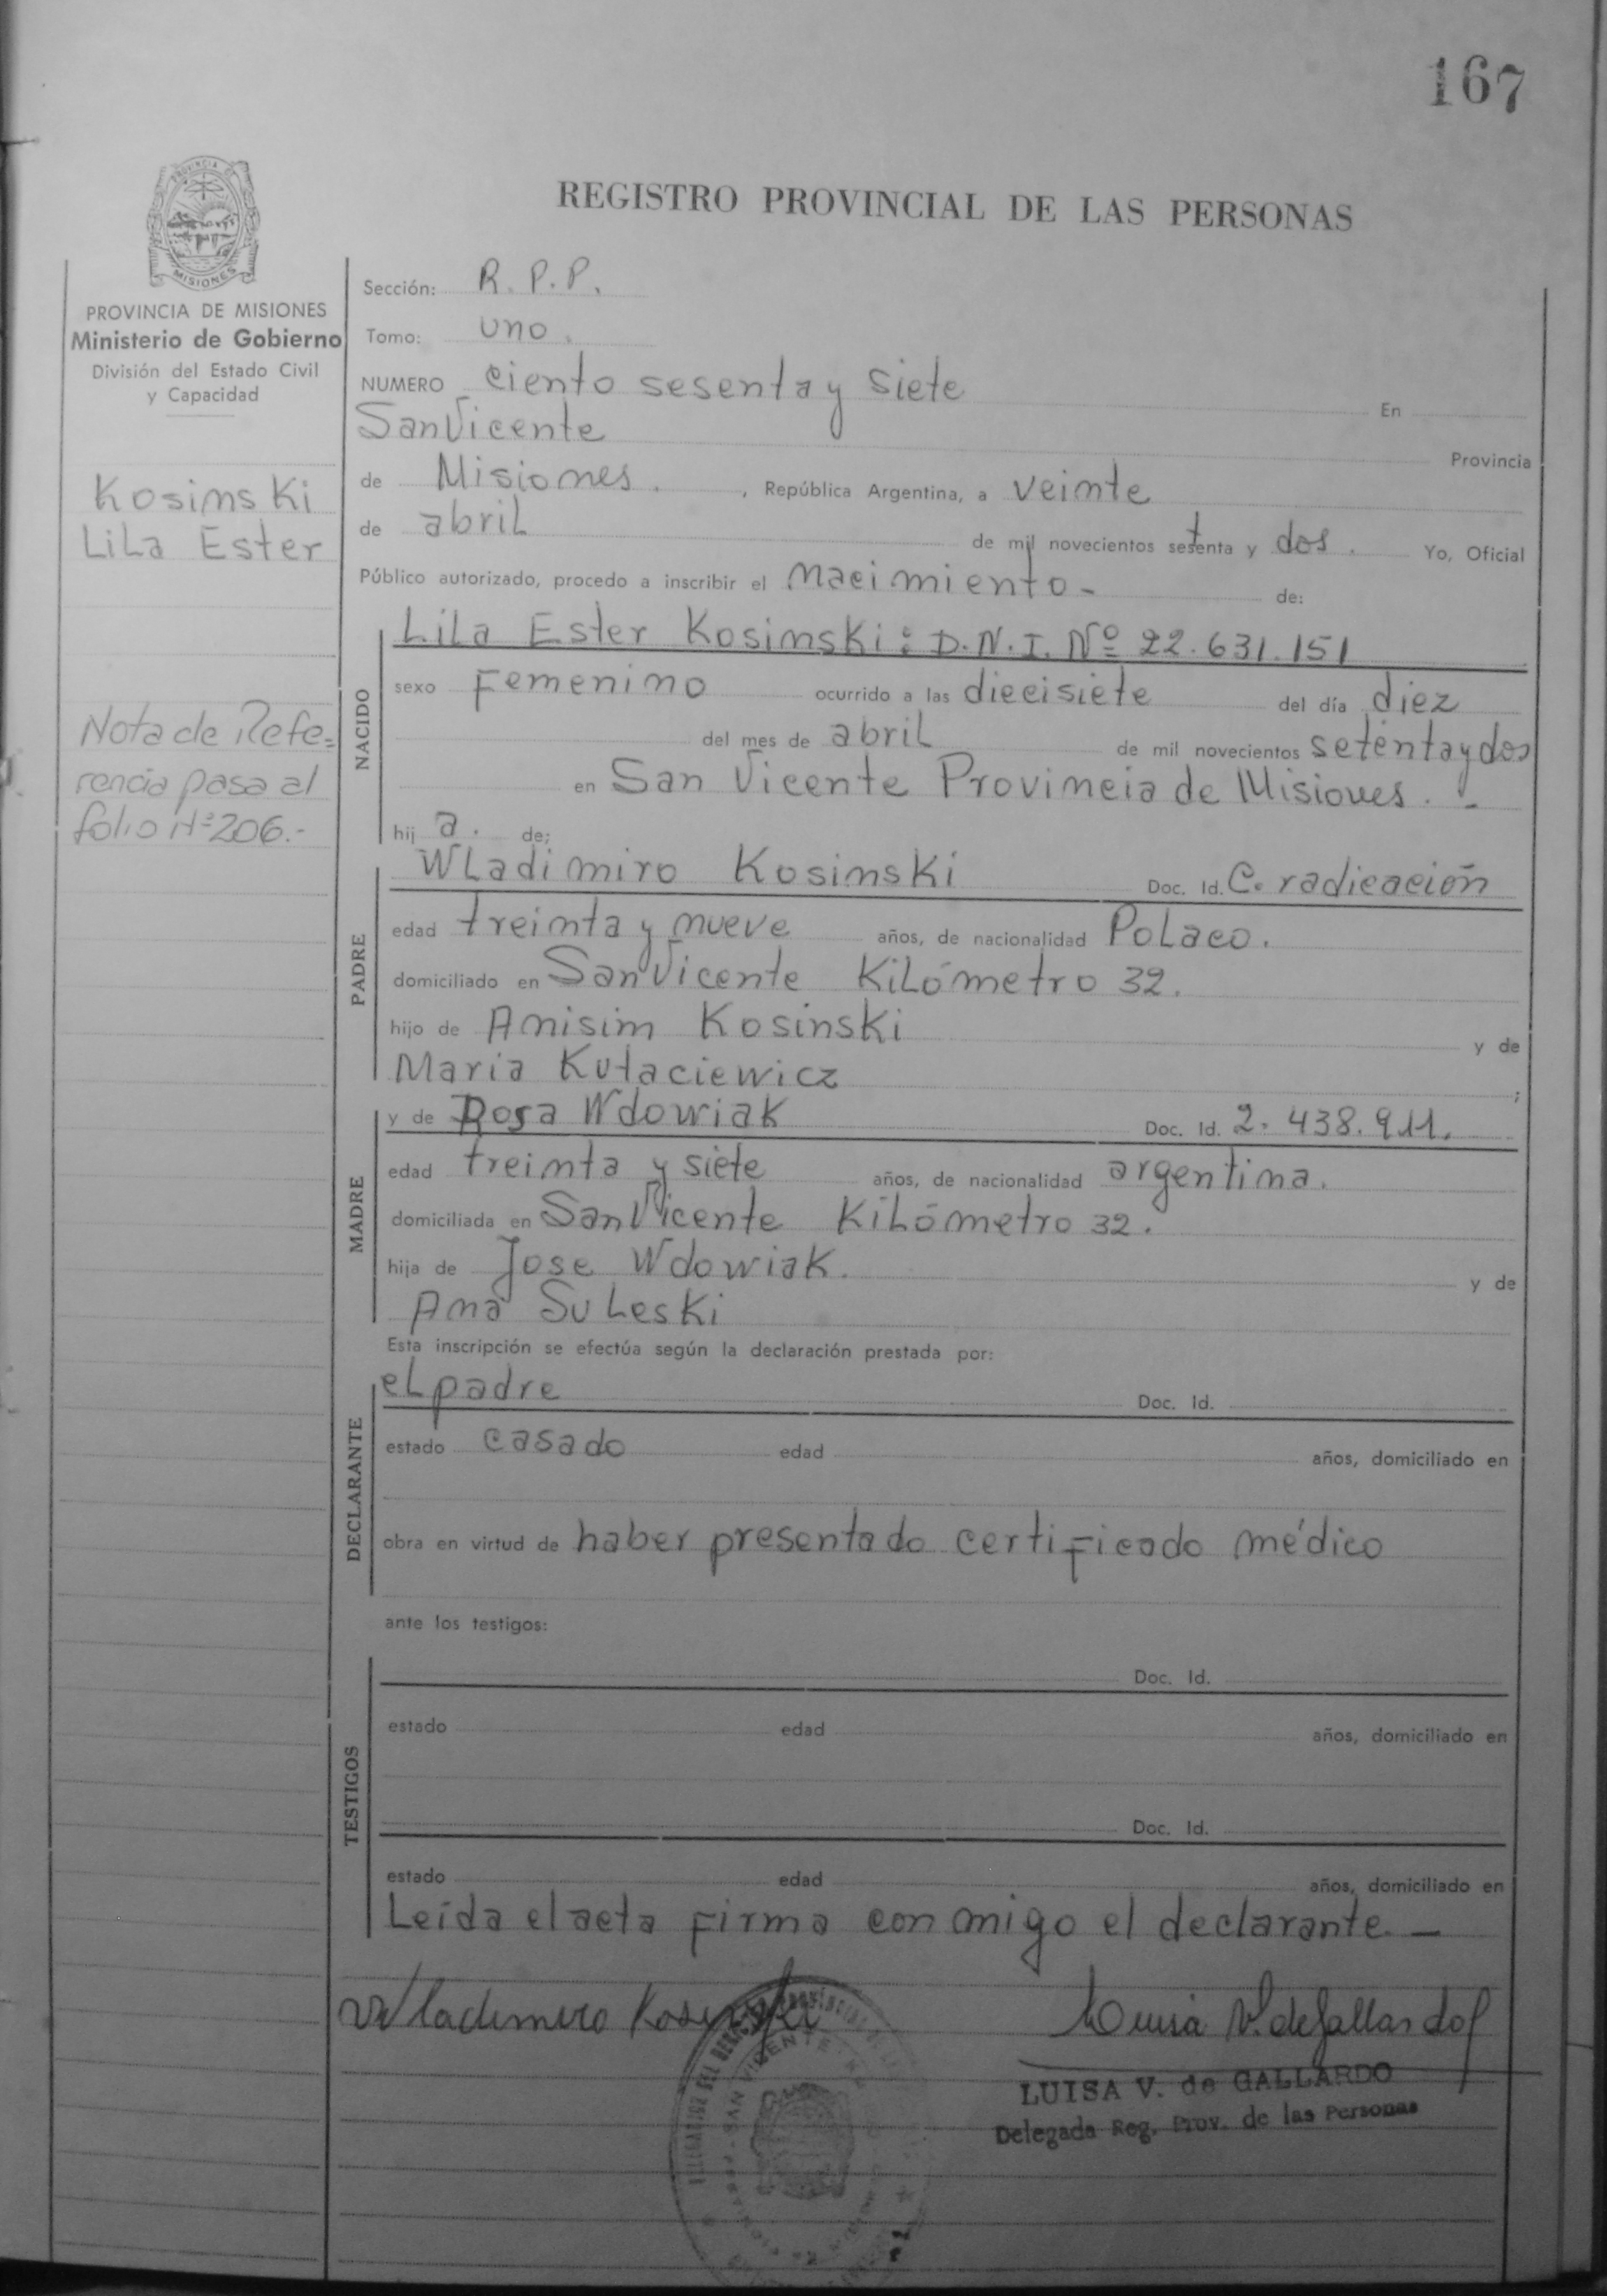 167
PROVINCIA DE
MISIONES
REGISTRO PROVINCIAL DE LAS PERSONAS
PROVINCIA DE MISIONES
Ministerio de Gobierno
División del Estado Civil
y Capacidad
Kosinski
Lila Ester
Nota de Refe=
rencia pasa al
folio Nº 206.-
Sección: R. P. P.
Tomo: uno.
NUMERO ciento sesenta y siete En
San Vicente Provincia
de Misiones. , República Argentina, a veinte
de abril de mil novecientos setenta y dos. Yo, Oficial
Público autorizado, procedo a inscribir el nacimiento- de:
NACIDO
Lila Ester Kosinski: D.N.I. Nº 22.631.151
sexo Femenino ocurrido a las diecisiete del día diez
del mes de abril de mil novecientos setenta y dos
en San Vicente Provincia de Misiones. -
hij a. de;
PADRE
Wladimiro Kosinski Doc. Id. C. radicación
edad treinta y nueve años, de nacionalidad Polaco.
domiciliado en San Vicente Kilómetro 32.
hijo de Anisim Kosinski y de
Maria Kutaciewicz ;
MADRE
y de Rosa Wdowiak Doc. Id. 2. 438. 911.
edad treinta y siete años, de nacionalidad argentina.
domiciliada en San Vicente Kilómetro 32.
hija de Jose Wdowiak. y de
Ana Suleski
Esta inscripción se efectúa según la declaración prestada por:
DECLARANTE
el padre Doc. Id.
estado casado edad años, domiciliado en
obra en virtud de haber presentado certificado médico
ante los testigos:
TESTIGOS
Doc. Id.
estado edad años, domiciliado en
Doc. Id.
estado edad años, domiciliado en
Leída el acta firma conmigo el declarante. -
Wladimiro Kosinski
Luisa V. de Gallardo
LUISA V. de GALLARDO
Delegada Reg. Prov. de las Personas
SAN VICENTE